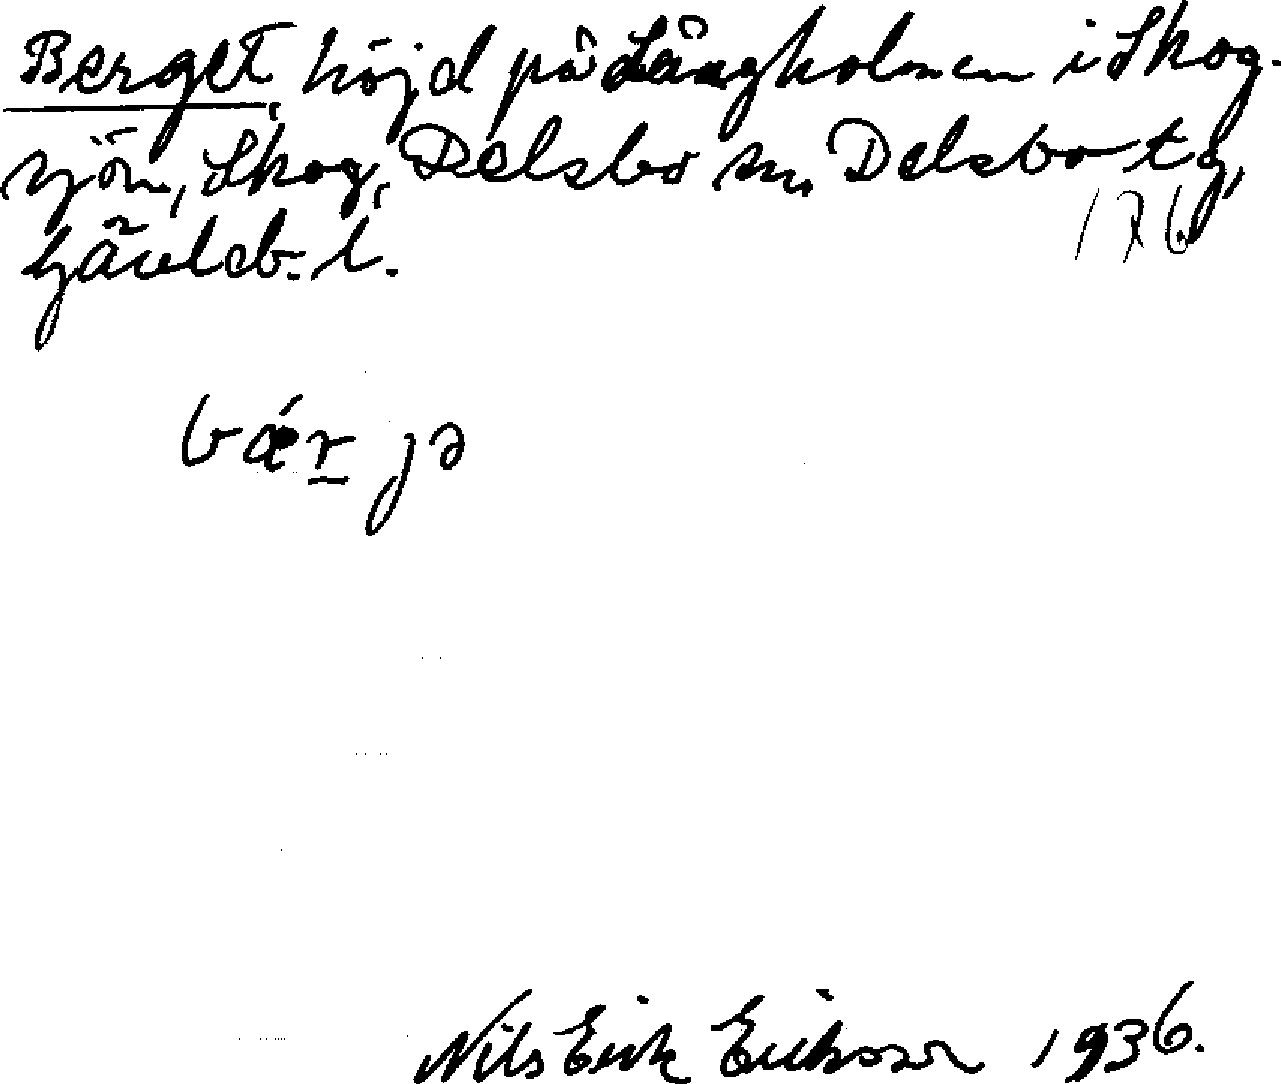 Berget, höjd på Långholmen i Skog-
sjön, Skog, Delsbo sn, Delsbo tg,
Gävleb. l.
176
bǽr̲jə
Nils Erik Eriksson 1936.